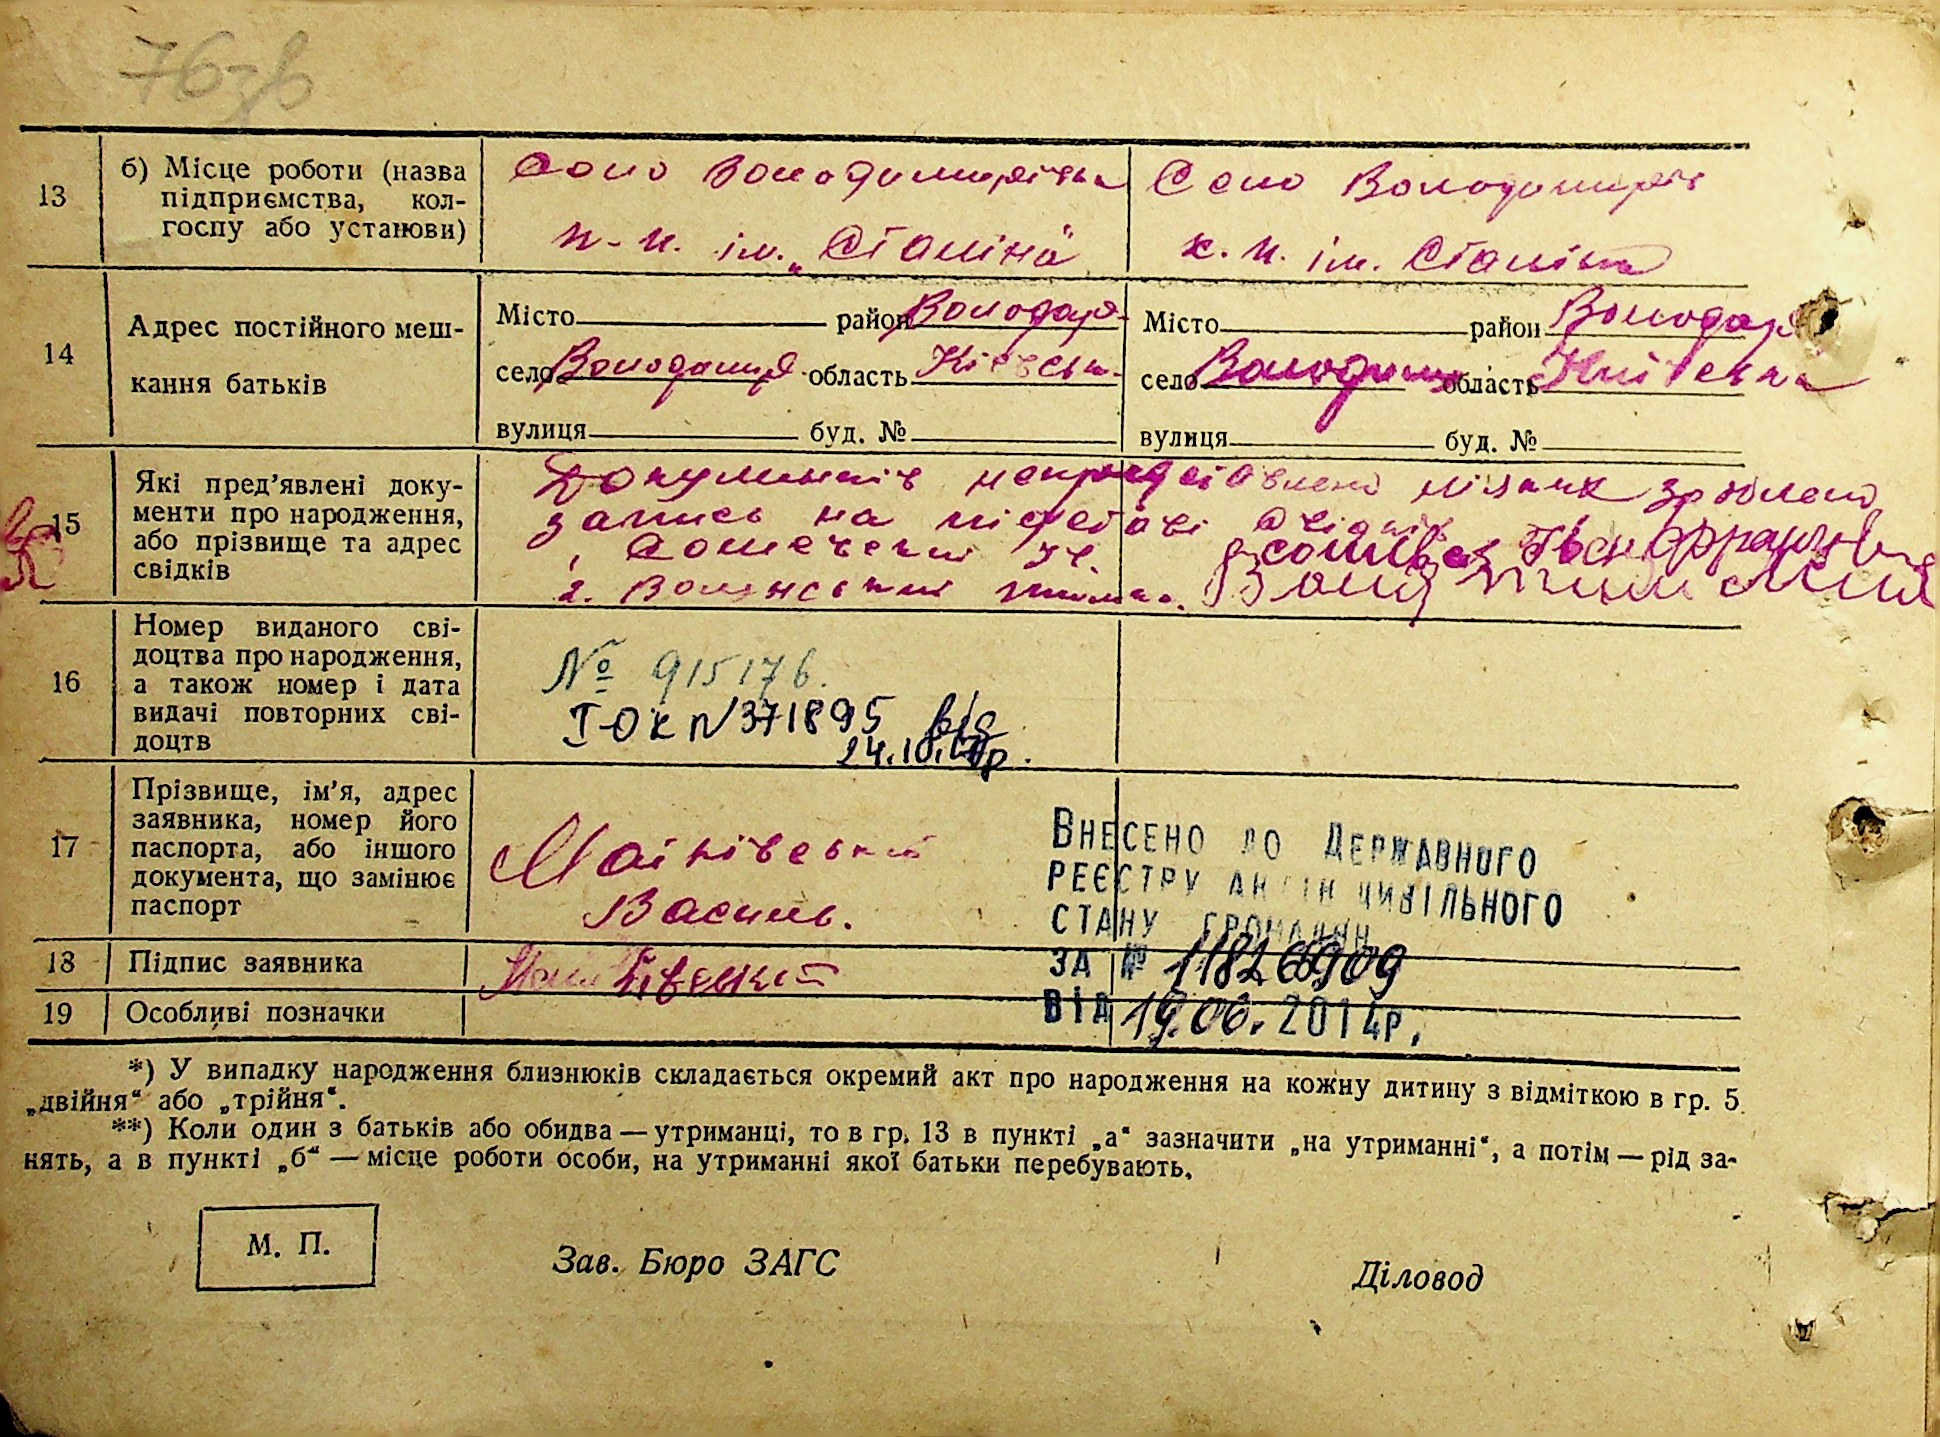 76зв
13
б) Місце роботи (назва
підприємства, кол-
госпу або установи)
Село Володимирівка
к. г. ім. „Сталіна"
Село Володимирів
к. г. ім. Сталіна
14
Адрес постійного меш-
кання батьків
Місто район Володар.
село Володимир. область Київськ.
вулиця буд. №
Місто район Володар
село Володимир область Київська
вулиця буд. №
15
Які пред'явлені доку-
менти про народження,
або прізвище та адрес
свідків
Документів
запись на підставі свідків
1.
2. Волинський
16
Номер виданого сві-
доцтва про народження,
а також номер і дата
видачі повторних сві-
доцтв
№ 915176.
І-ОК №371895 від
24.10.
17
Прізвище, ім'я, адрес
заявника, номер його
паспорта, або іншого
документа, що замінює
паспорт
Василь.
Внесено до Державного
реєстру актів цивільного
стану громадян
за №
від 19.06.2014р.
18
Підпис заявника
19
Особливі позначки
*) У випадку народження близнюків складається окремий акт про народження на кожну дитину з відміткою в гр. 5
„двійня“ або „трійня“.
**) Коли один з батьків або обидва — утриманці, то в гр. 13 в пункті „а“ зазначити „на утриманні“, а потім — рід за-
нять, а в пункті „б“ — місце роботи особи, на утриманні якої батьки перебувають.
М. П.
Зав. Бюро ЗАГС
Діловод